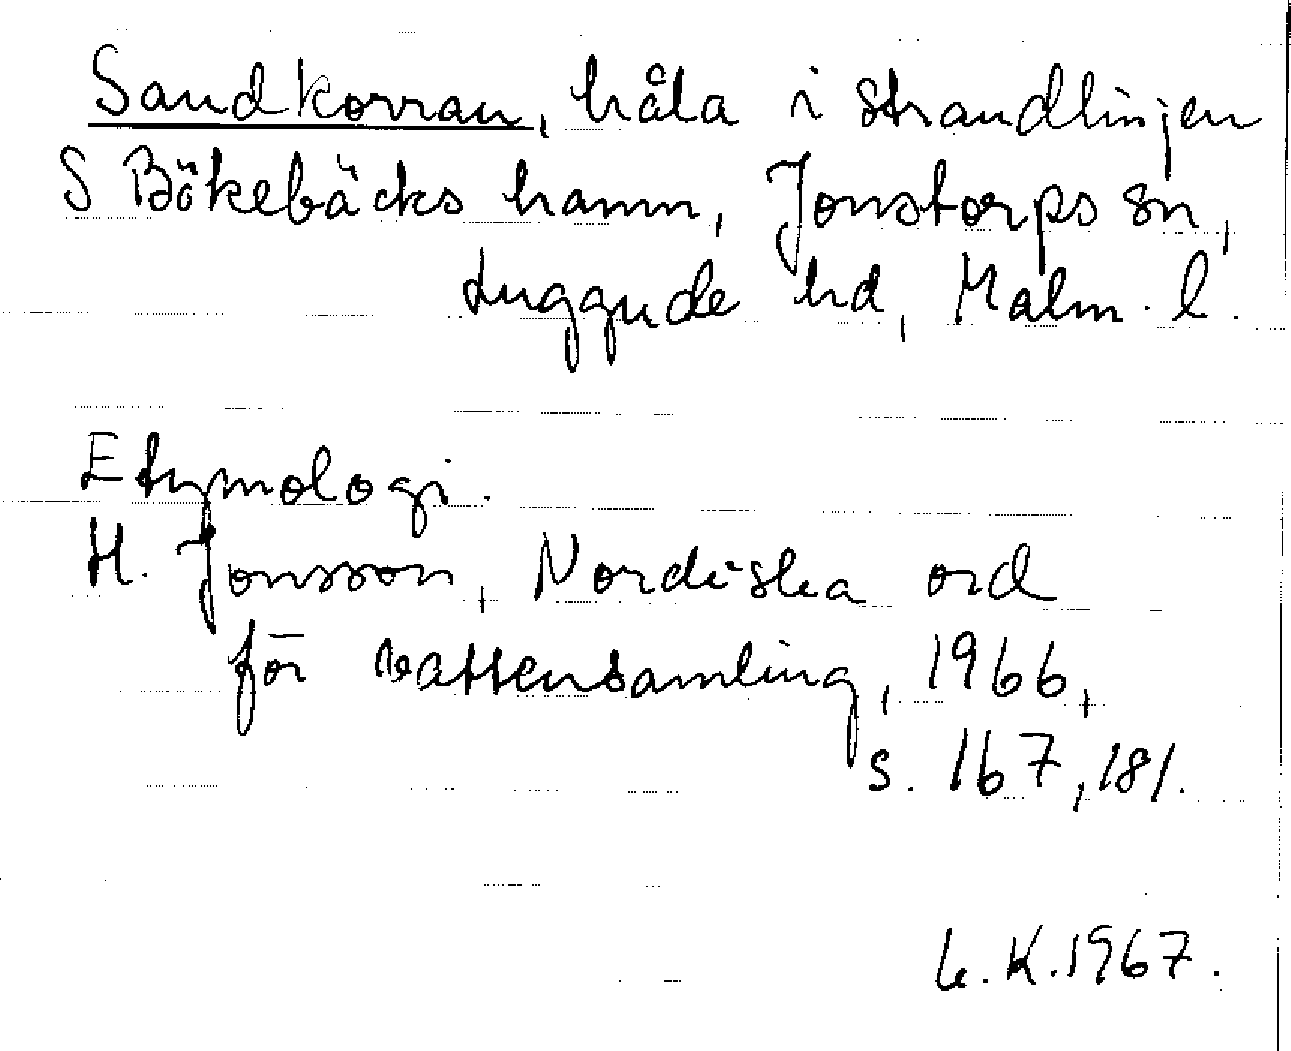 Sandkorran, håla i strandlinjen
S Bökebäcks hamn, Jonstorps sn,
Luggude hd, Malm. l.
Etymologi.
H. Jonsson, Nordiska ord
för vattensamling, 1966,
s. 167, 181.
L. K. 1967.